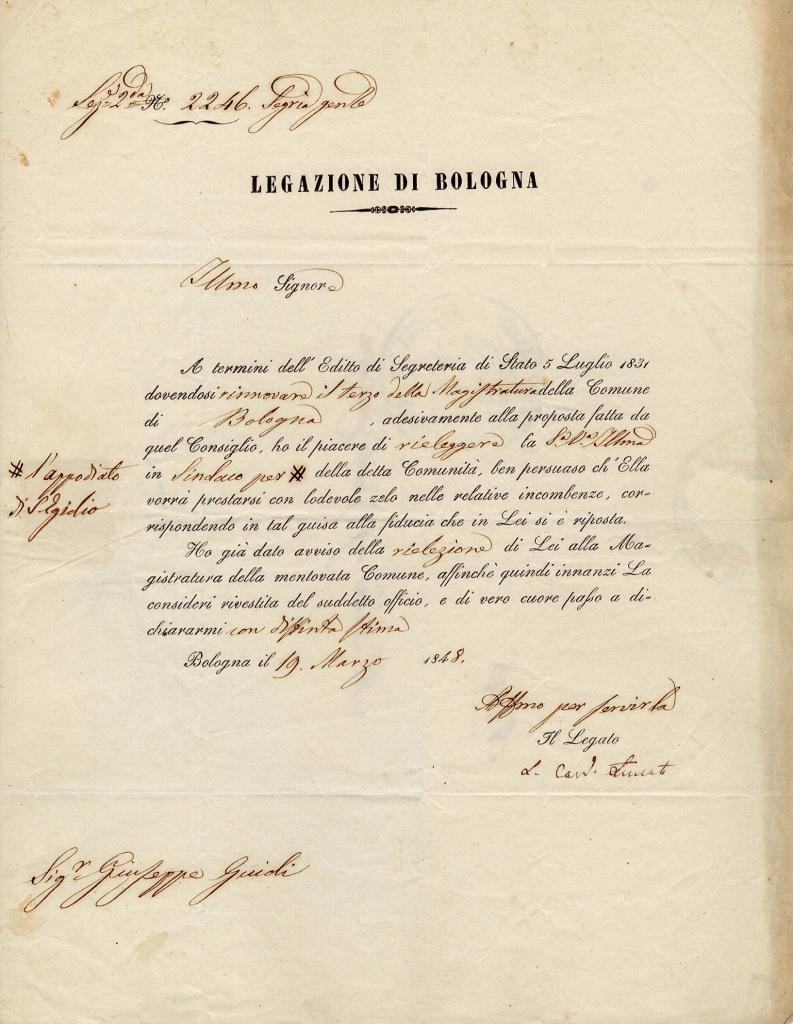 Sez.e 2da No. 2246. Segria genle
LEGAZIONE DI BOLOGNA
Illmo Signore
A termini dell' Editto di Segreteria di Stato 5 Luglio 1831
dovendosi rinnovare il terzo della Magistratura della Comune
di Bologna , adesivamente alla proposta fatta da
quel Consiglio, ho il piacere di rieleggere la S.a V.a Illma
in Sindaco per # della detta Comunità, ben persuaso ch' Ella
# l'appodiato
di S. Egidio
vorrà prestarsi con lodevole zelo nelle relative incombenze, cor-
rispondendo in tal guisa alla fiducia che in Lei si è riposta.
Ho già dato avviso della rielezione di Lei alla Ma-
gistratura della mentovata Comune, affinchè quindi innanzi La
consideri rivestita del suddetto officio, e di vero cuore passo a di-
chiararmi con distinta stima
Bologna il 19. Marzo 1848.
Affmo per servirla
Il Legato
L. Card.
Sigr Giuseppe Guidi